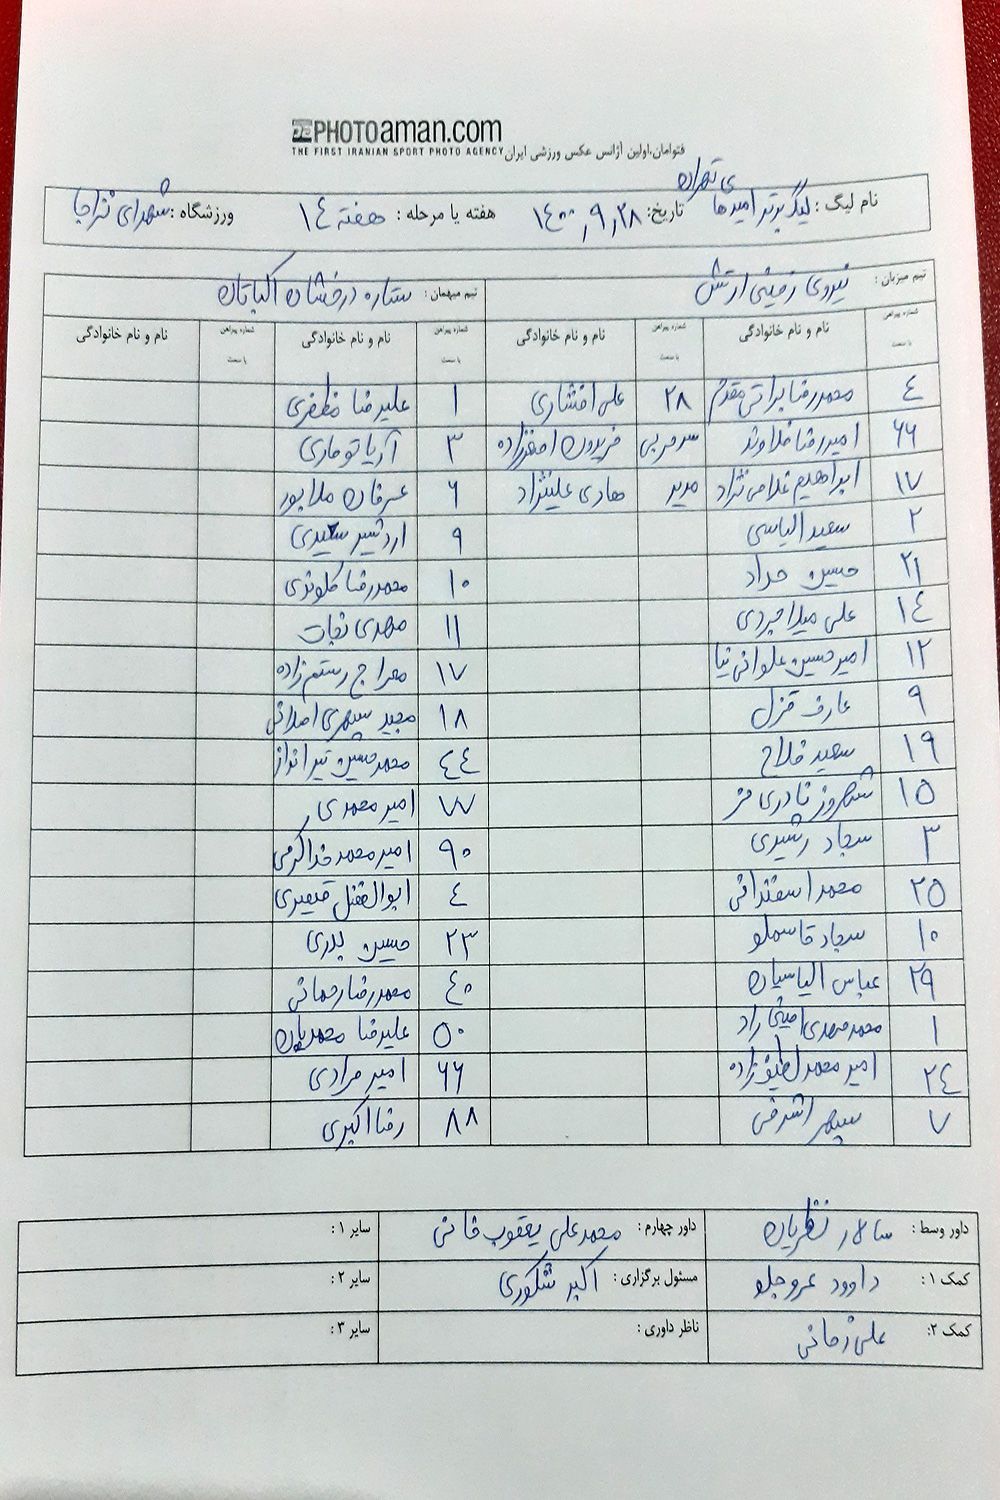 PHOTOaman.com
THE FIRST IRANIAN SPORT PHOTO AGENCY فتوامان،اولین آژانس عکس ورزشی ایران
نام لیگ : لیگ برتر امیدهای تهران تاریخ: ۱۴۰۰٫۹٫۲۸ هفته یا مرحله : هفته ۱۴ ورزشگاه : شهدای نزاجا
تیم میزبان : نیروی زمینی ارتش تیم میهمان : ستاره درخشان اکباتان
شماره پیراهن یا سمت نام و نام خانوادگی شماره پیراهن یا سمت نام و نام خانوادگی شماره پیراهن یا سمت نام و نام خانوادگی شماره پیراهن یا سمت نام و نام خانوادگی
۴ محمدرضا براتی مقدم ۲۸ علی افشاری ۱ علیرضا مظفری
۶۶ امیررضا فلاوند سرمربی فریدون اصغرزاده ۳ آریا توماری
۱۷ ابراهیم غلامی نژاد مدیر هادی علینژاد ۶ عرفان ملاپور
۲ سعید الیاسی ۹ اردشیر سعیدی
۲۱ حسین حداد ۱۰ محمدرضا کلوندی
۱۴ علی میلاجردی ۱۱ مهدی نجات
۱۲ امیرحسین علوانی نیا ۱۷ معراج رستم زاده
۹ عارف قزل ۱۸ مجید سپهری املاقی
۱۹ سعید فلاح ۴۴ محمدحسین تیرانداز
۱۵ شهروز نادری فر ۷۷ امیر محمدی
۳ سجاد رشیدی ۹۰ امیرمحمد خداکرمی
۲۵ محمد اسفندانی ۴ ابوالفضل قیصری
۱۰ سجاد قاسملو ۲۳ حسین بدری
۲۹ عباس الیاسیان ۴۰ محمدرضا رحمانی
۱ محمدمهدی امینی راد ۵۰ علیرضا محمدیان
۲۴ امیرمحمد لطیف زاده ۶۶ امیر مرادی
۷ سپهر اشرفی ۸۸ رضا اکبری
داور وسط : سالار نظریان داور چهارم : محمدعلی یعقوب خانی سایر ۱ :
کمک ۱ : داوود عروجلو مسئول برگزاری : اکبر شکوری سایر ۲ :
کمک ۲: علی زمانی ناظر داوری : سایر ۳ :